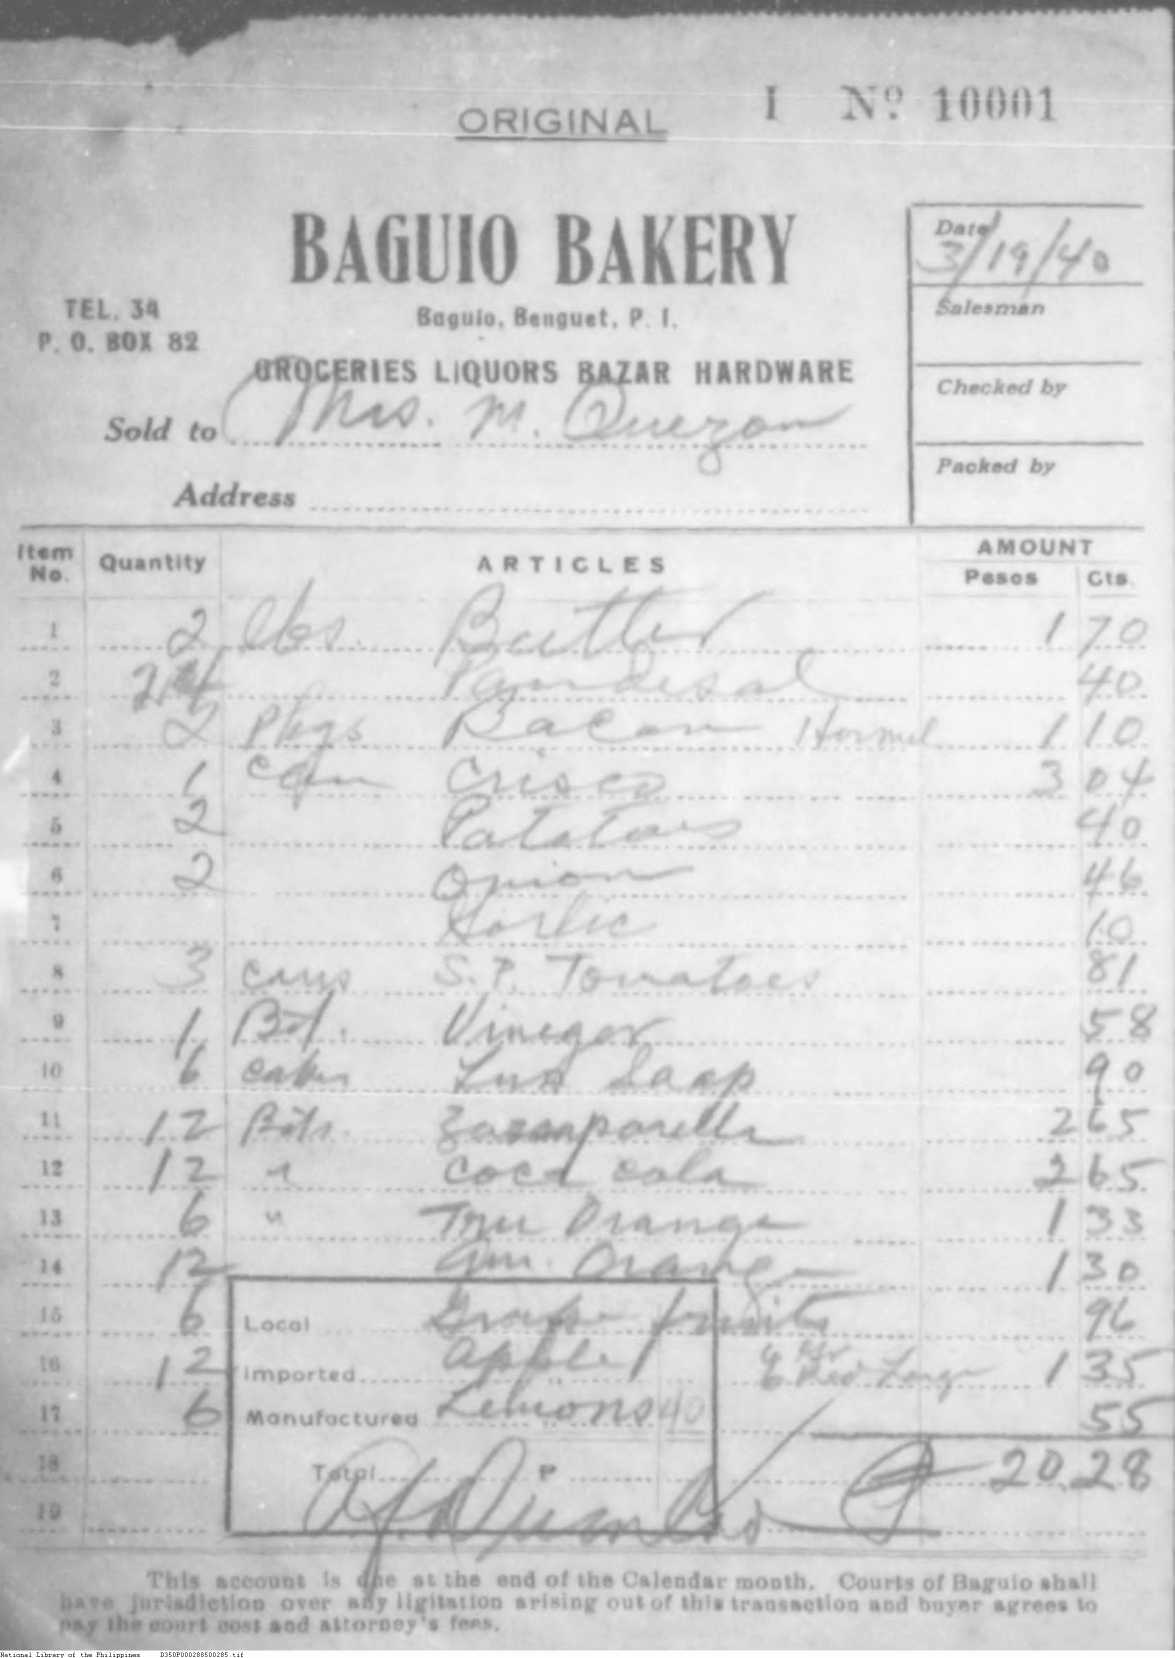 ORIGINAL
I Nº 10001
BAGUIO BAKERY
Baguio, Benguet, P. I.
TEL. 34
P. O. BOX 82
GROCERIES LIQUORS BAZAR HARDWARE
Sold to Mrs. M. Quezon
Address
Date 3/19/40
Salesman
Checked by
Packed by
Item No. Quantity ARTICLES AMOUNT Pesos Cts.
1 2 lbs. Butter 1 70
2 Pandesal 40
3 2 Pkgs Bacon Hormel 1 10
4 1 can Crisco 3 04
5 2 Patatoes 40
6 2 Onion 46
7 Garlic 10
8 3 cans S.P. Tomatoes 81
9 1 Bot. Vinegar 58
10 6 cakes Lux Soap 90
11 12 Bots. Zazaparella 2 65
12 12 " Coca Cola 2 65
13 6 " Tru Orange 1 33
14 12 Am. Orange 1 30
15 6 Grape fruits 96
16 12 Apple 6 6 Red Large 1 35
17 6 Lemons 40 55
18 20.28
19
Local
Imported
Manufactured
Total P
This account is due at the end of the Calendar month. Courts of Baguio shall
have jurisdiction over any ligitation arising out of this transaction and buyer agrees to
pay the court cost and attorney's fees.
National Library of the Philippines D350P000288500285.tif